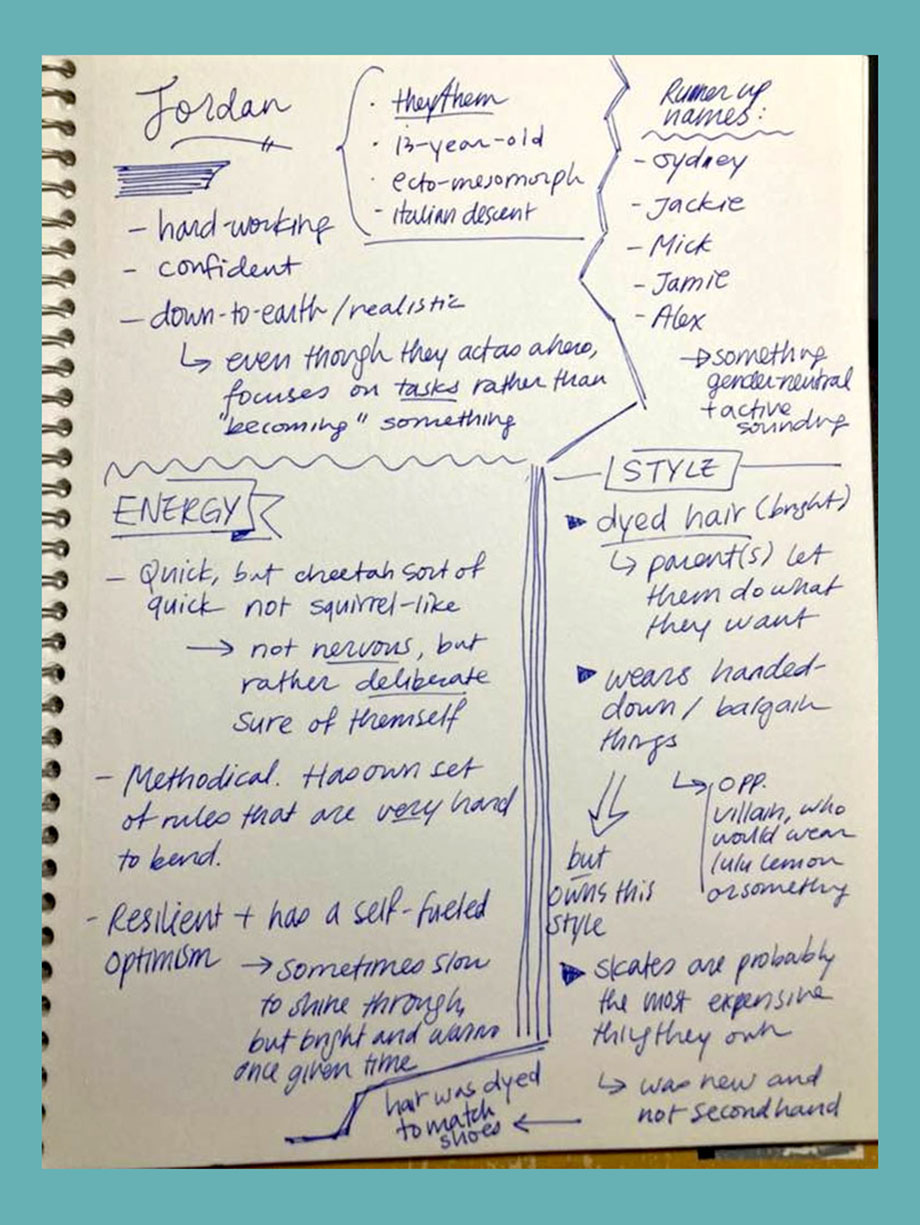 Jordan
· they/them
· 13-year-old
· ecto-mesomorph
- italian descent
- hard-working
- confident
- down-to-earth/realistic
↳ even though they act as a hero,
focuses on tasks rather than
"becoming" something
Runner up
names:
- Sydney
- Jackie
- Mick
- Jamie
- Alex
→ something
gender neutral
+ active
sounding
ENERGY
- Quick, but cheetah sort of
quick not squirrel-like
→ not nervous, but
rather deliberate
sure of themself
- Methodical. Has own set
of rules that are very hard
to bend.
- Resilient + has a self-fueled
optimism → sometimes slow
to shine through,
but bright and warm
once given time
STYLE
▶ dyed hair (bright)
↳ parent(s) let
them do what
they want
▶ wears handed-
down / bargain
things
↳ opp.
villain, who
would wear
lulu lemon
or something
but
owns this
style
▶ skates are probably
the most expensive
thing they own
↳ was new and
not secondhand
hair was dyed
to match
shoes ←